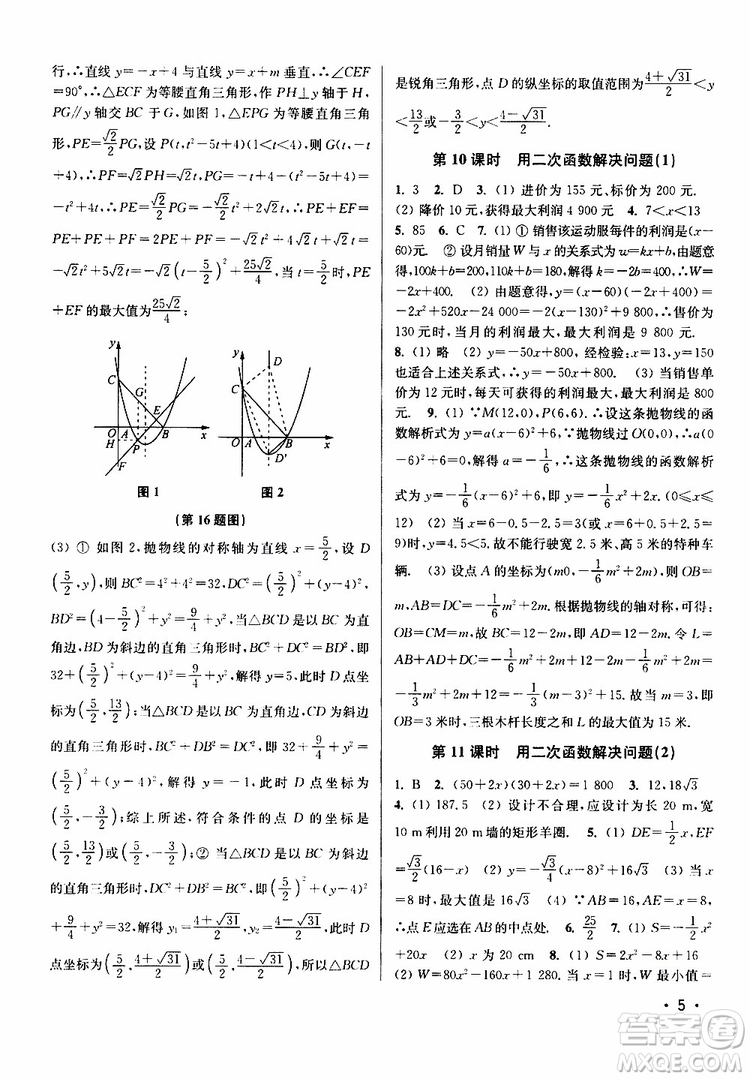 行,∴直线 y=-x+4 与直线 y=x 垂直,∴∠CEF
=90°,∴△ECF 为等腰直角三角形,作 PH⊥y 轴于 H,
PG∥y 轴交 BC 于 G,如图 1,△EPG 为等腰直角三角
形,PE=√2/2 PG,设 P(t,t²-5t+4)(1<t<4),则G(t,-t
+4),∴PF=√2PH=√2t,PG=-t+4-(t²-5t+4)=
-t²+4t,∴PE=√2/2 PG=-√2/2 t²+2√2t,∴PE+EF=
PE+PE+PF=2PE+PF=-√2t²+4√2t+√2t=
-√2t²+5√2t=-√2(t-5/2)²+25√2/4,当 t=5/2时,PE
+EF 的最大值为25√2/4;
y
C
G
E
O
A
B
x
H
P
F
图 1
y
D
C
O
A
B
x
D′
图 2
(第 16 题图)
(3) ① 如图 2,抛物线的对称轴为直线 x=5/2,设 D
(5/2,y),则 BC²=4²+4²=32,DC²=(5/2)²+(y-4)²,
BD²=(4-5/2)²+y²=9/4+y²,当△BCD 是以 BC 为直
角边,BD 为斜边的直角三角形时,BC²+DC²=BD²,即
32+(5/2)²+(y-4)²=9/4+y²,解得 y=5,此时 D 点坐
标为(5/2,13/2);当△BCD 是以 BC 为直角边,CD 为斜边
的直角三角形时,BC²+DB²=DC²,即 32+9/4+y²=
(5/2)²+(y-4)²,解得 y=-1,此时 D 点坐标为
(5/2,-3/2);综上所述,符合条件的点 D 的坐标是
(5/2,13/2)或(5/2,-3/2);② 当△BCD 是以 BC 为斜边
的直角三角形时,DC²+DB²=BC²,即(5/2)²+(y-4)²
+9/4+y²=32,解得 y₁=(4+√31)/2,y₂=(4-√31)/2,此时 D
点坐标为(5/2,(4+√31)/2)或(5/2,(4-√31)/2),所以△BCD
是锐角三角形,点 D 的纵坐标的取值范围为(4+√31)/2<y
<13/2或-3/2<y<(4-√31)/2.
第 10 课时 用二次函数解决问题(1)
1. 3 2. D 3. (1) 进价为 155 元,标价为 200 元.
(2) 降价 10 元,获得最大利润 4 900 元 4. 7<x<13
5. 85 6. C 7. (1) ① 销售该运动服每件的利润是(x-
60)元. ② 设月销量 W 与 x 的关系式为 w=kx+b,由题意
得,100k+b=200,解得,k=-2,b=400,∴W=
-2x+400. (2) 由题意得,y=(x-60)(-2x+400)=
-2x²+520x-24 000=-2(x-130)²+9 800,∴售价为
130 元时,当月的利润最大,最大利润是 9 800 元.
8. (1) 略 (2) k=-20,b=200,经检验:x=13,y=150
也适合上述关系式,∴y=-20x+400. (3) 当销售单
价为 12 元时,每天可获得的利润最大,最大利润是 960
元 9. (1) ∵M(12,0),P(6,6).∴设这条抛物线的函
数解析式为 y=a(x-6)²+6,∵抛物线过 O(0,0),∴a(0
-6)²+6=0,解得 a=-1/6,∴这条抛物线的函数解析
式为 y=-1/6(x-6)²+6,即 y=-1/6x²+2x.(0≤x≤
12) (2) 当 x=6-0.5-2.5=3(或 x=6+0.5+2.5=
9)时 y=4.5<5.故不能行驶宽 2.5 米、高 5 米的特种车
辆. (3) 设点 A 的坐标为 (m0,-1/6m²+2m),则 OB=
m,AB=DC=-1/6m²+2m.根据抛物线的轴对称,可得
OB=CM=m,故 BC=12-2m,即 AD=12-2m.令 L=
AB+AD+DC=-1/6m²+2m+12-2m-1/6m²+2m=
-1/3m²+2m+12=-1/3(m-3)²+15.故当 m=3,即
OB=3 米时,三根木杆长度之和 L 的最大值为 15 米.
第 11 课时 用二次函数解决问题(2)
1. B 2. (50+2x)(30+2x)=1 800 3. 12,18√3
4. (1) 187.5 (2) 设计不合理,应设计为长 20 m,宽
10 m 利用 20 m 墙的矩形羊圈. 5. (1) DE=1/2x,EF
=√3/2(16-x) (2) y=-√3/4(x-8)²+16√3,当 x=8
时,y 值最大,最大值是 16√3 (3) ∵AB=16,AE=8,
∴点 E 应选在 AB 的中点处. 6. 25/2 7. (1) S=-1/2x²
+20x (2) 当 x 为 20 cm 8. (1) S=x²-8x+16
(2) W=80x²-160x+1 280. (3) 当 x=1 时,W 最小值=
· 5 ·
答案圈
MXQE.COM